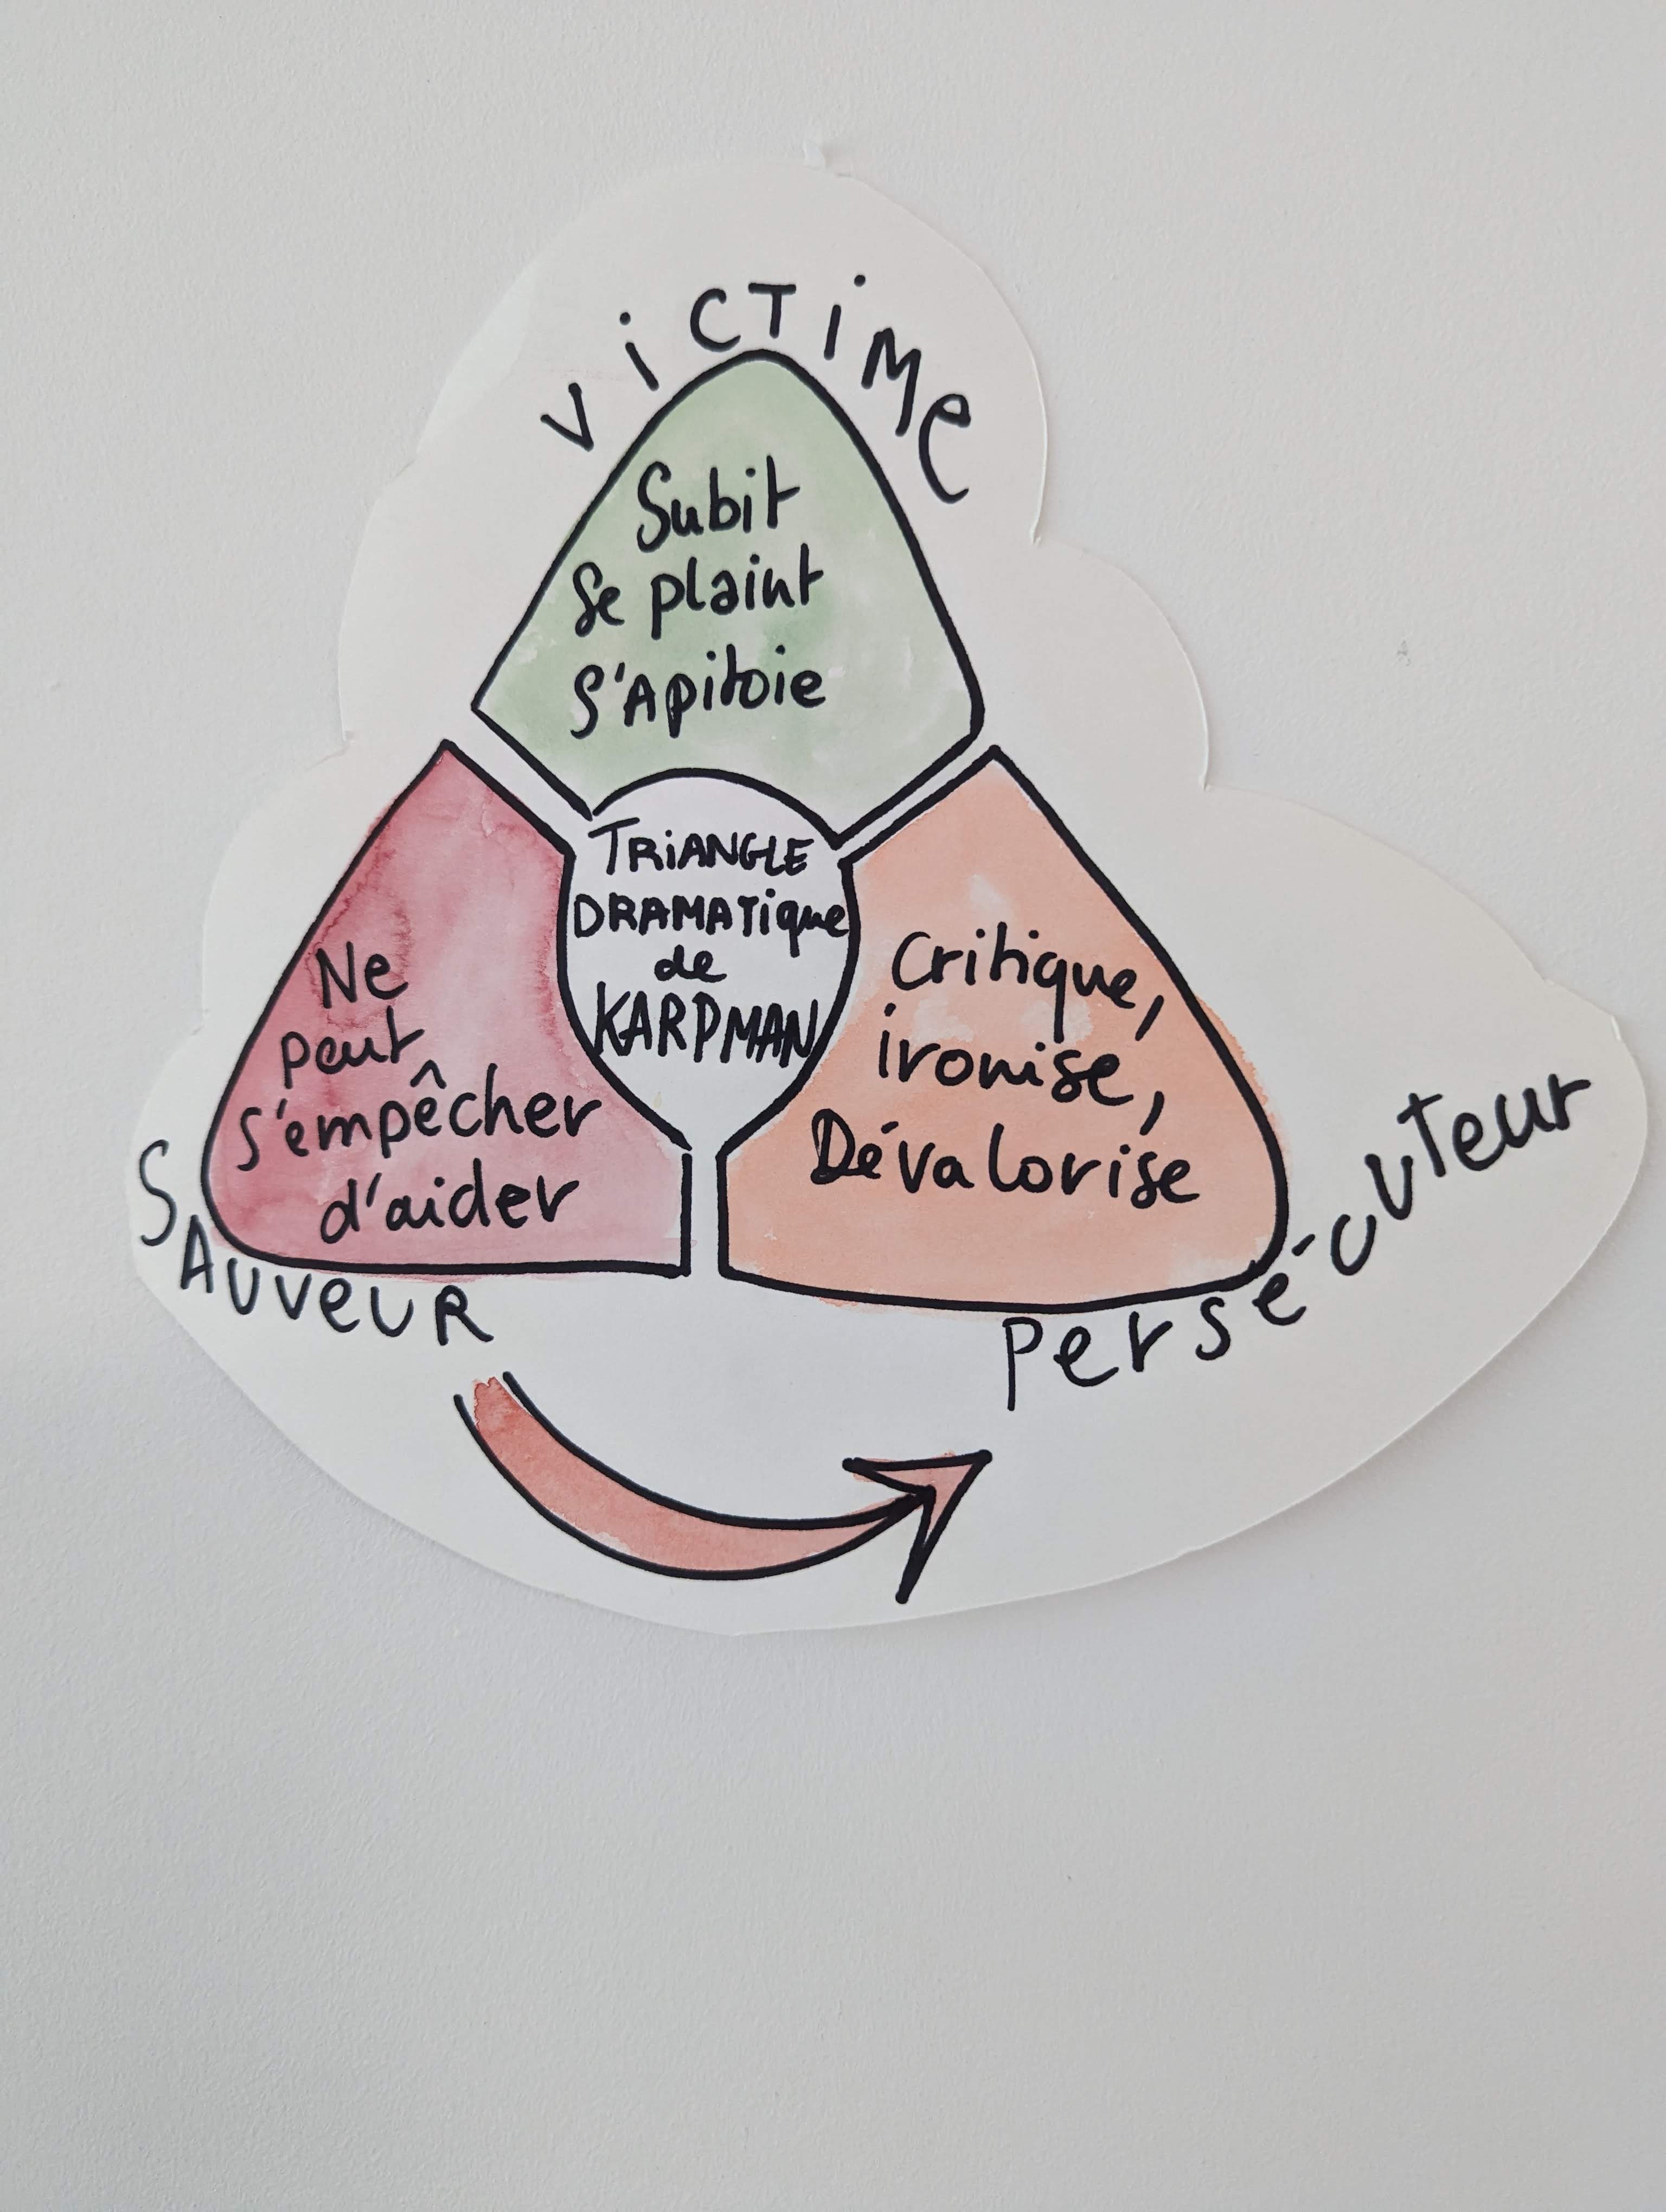 ViCTiMe
Subit
Se plaint
S'Apitoie
TRiANGLE
DRAMATique
de
KARPMAN
Ne
peut
s'empêcher
d'aider
SAUVeUR
Critique,
ironise,
Dévalorise
Persécuteur